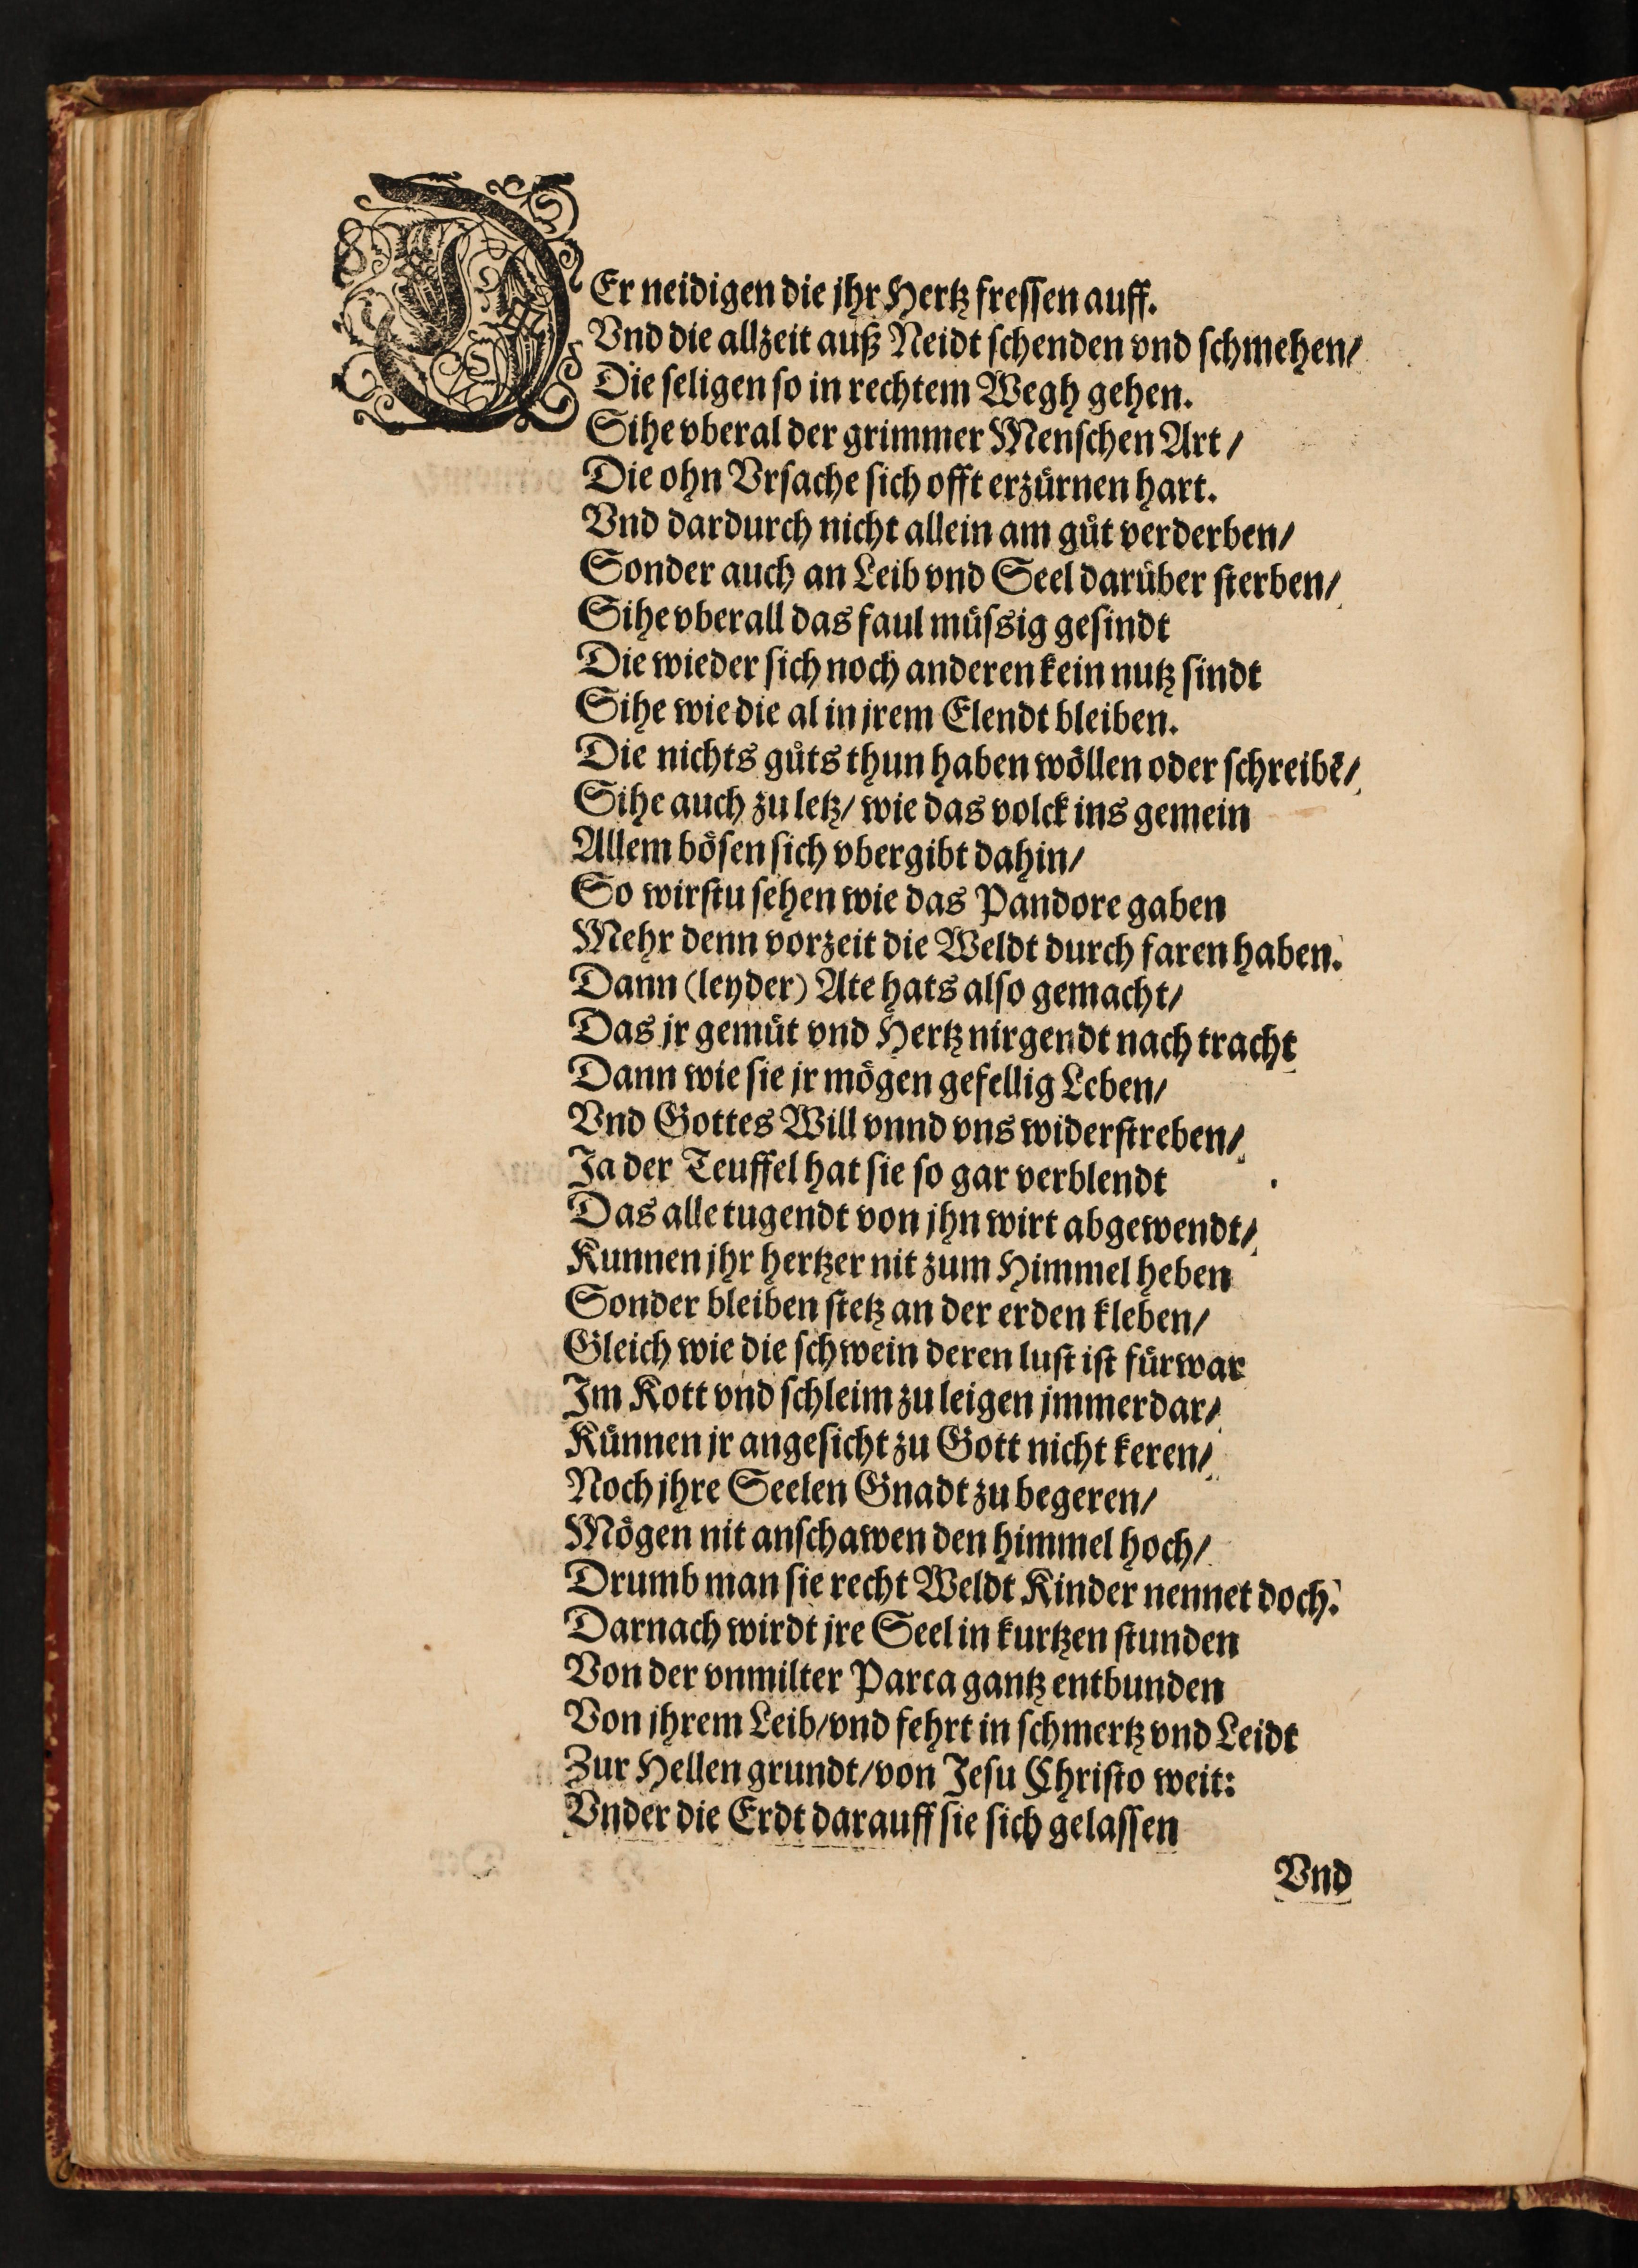 DEr neidigen die jhr Hertz fressen auff.
Vnd die allzeit auß Neidt schenden vnd schmehen/
Die seligen so in rechtem Wegh gehen.
Sihe vberal der grimmer Menschen Art/
Die ohn Vrsache sich offt erzürnen hart.
Vnd dardurch nicht allein am gůt verderben/
Sonder auch an Leib vnd Seel darüber sterben/
Sihe vberall das faul müssig gesindt
Die wieder sich noch anderen kein nutz sindt
Sihe wie die al in jrem Elendt bleiben.
Die nichts gůts thun haben wöllen oder schreibē/
Sihe auch zu letz/ wie das volck ins gemein
Allem bösen sich vbergibt dahin/
So wirstu sehen wie das Pandore gaben
Mehr denn vorzeit die Weldt durch faren haben.
Dann (leyder) Ate hats also gemacht/
Das jr gemüt vnd Hertz nirgendt nach tracht
Dann wie sie jr mögen gefellig Leben/
Vnd Gottes Will vnnd vns widerstreben/
Ja der Teuffel hat sie so gar verblendt
Das alle tugendt von jhn wirt abgewendt/
Kunnen jhr hertzer nit zum Himmel heben
Sonder bleiben stetz an der erden kleben/
Gleich wie die schwein deren lust ist fürwar
Im Kott vnd schleim zu leigen jmmerdar/
Künnen jr angesicht zu Gott nicht keren/
Noch jhre Seelen Gnadt zu begeren/
Mögen nit anschawen den himmel hoch/
Drumb man sie recht Weldt Kinder nennet doch.
Darnach wirdt jre Seel in kurtzen stunden
Von der vnmilter Parca gantz entbunden
Von jhrem Leib/vnd fehrt in schmertz vnd Leidt
Zur Hellen grundt/von Jesu Christo weit:
Vnder die Erdt darauff sie sich gelassen
Vnd